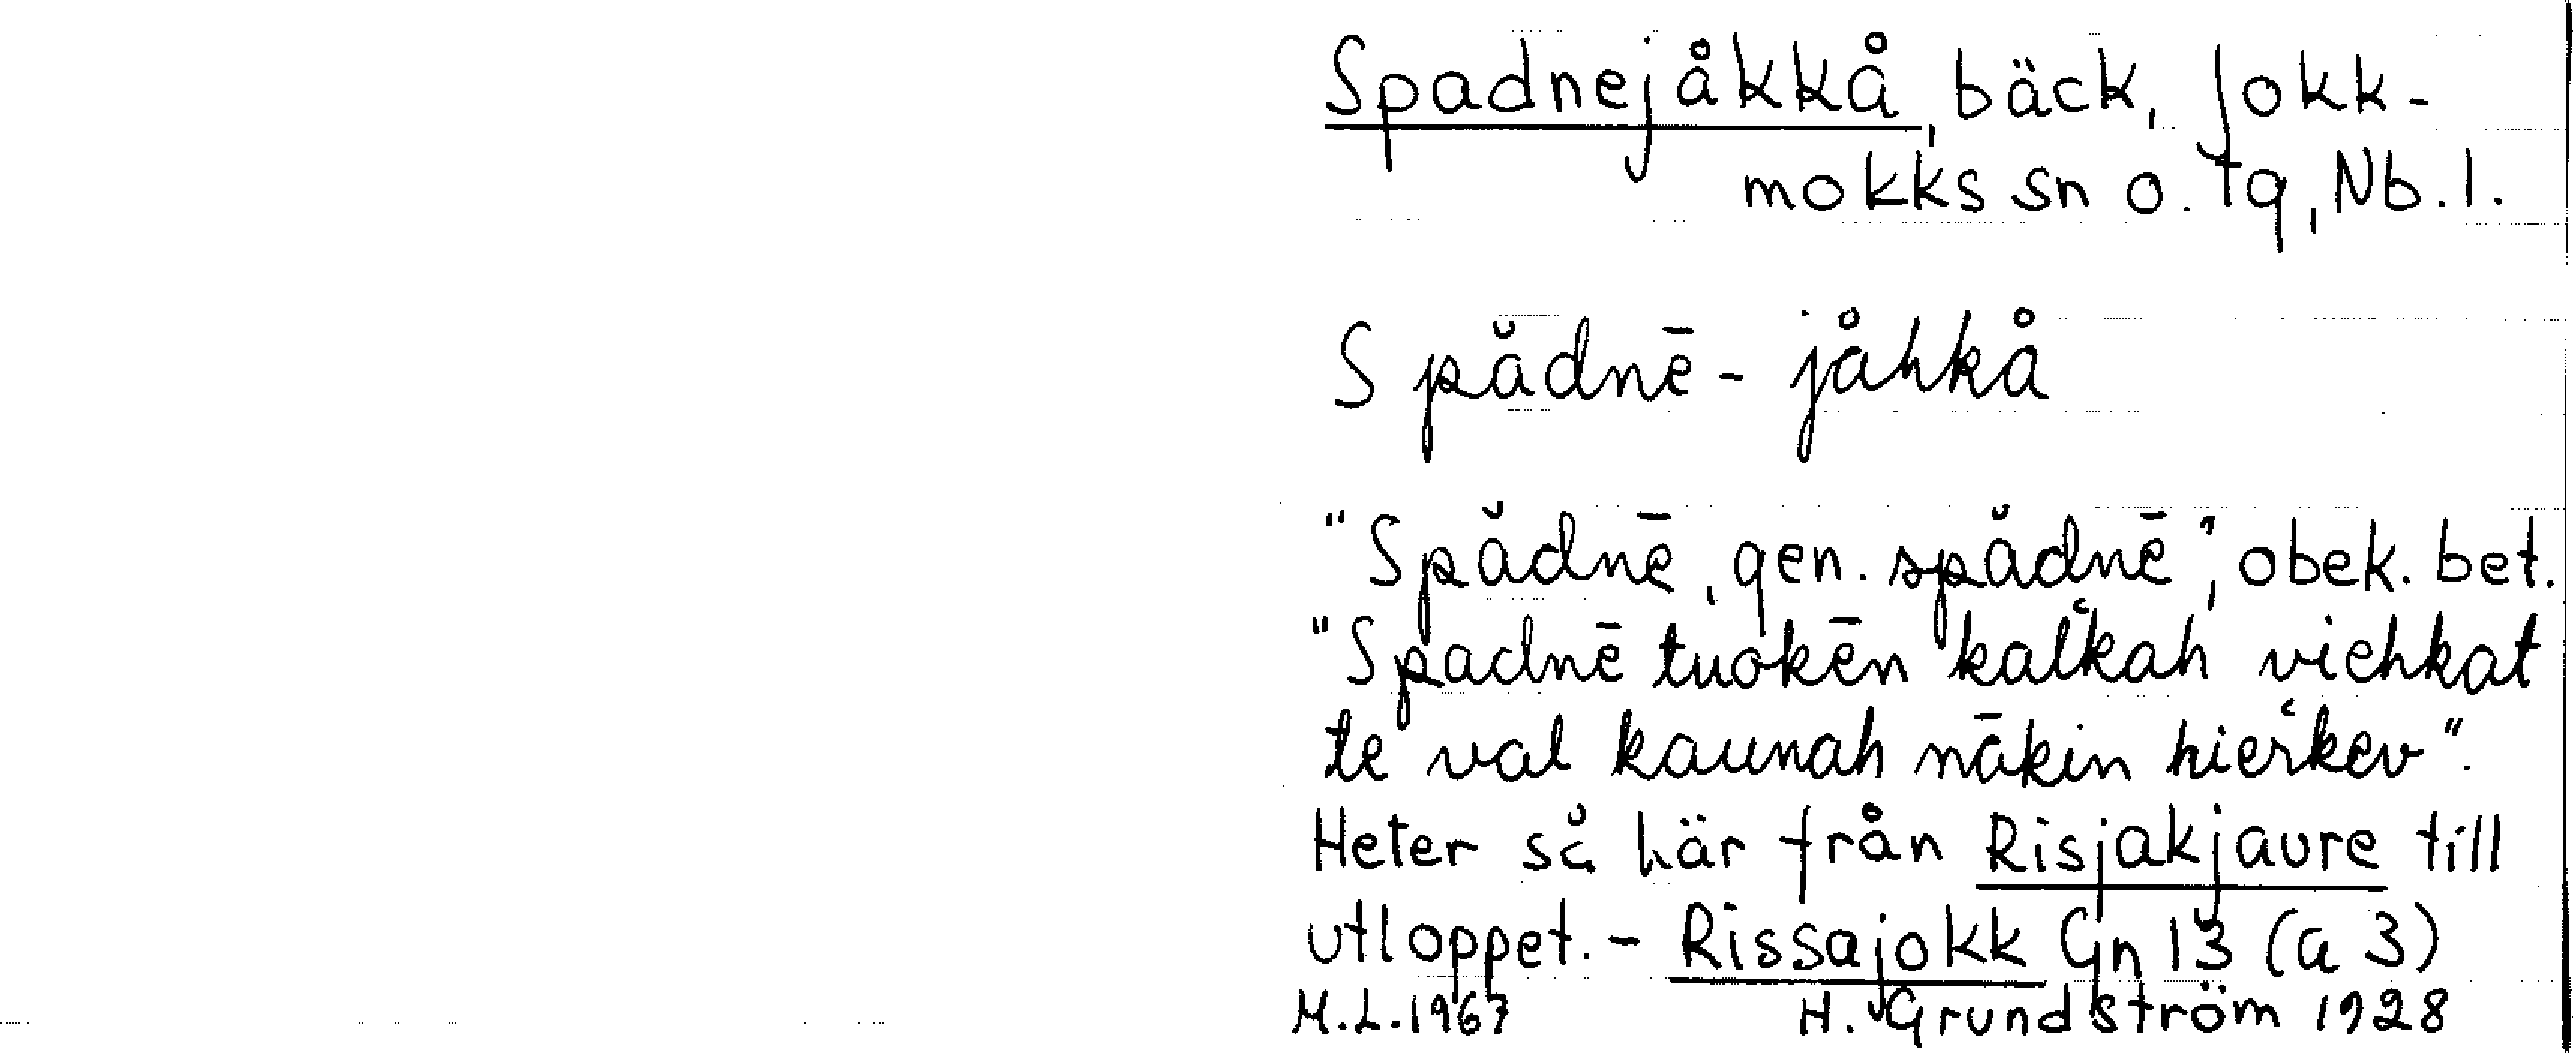 Spadnejåkkå, bäck, Jokk-
mokks sn o. tg, Nb. l.
Spădnē-jåhkå
"Spădnē, gen. spădnē", obek. bet.
"Spadnē tuokēn kalʻkah viehkat
te val kaunah nākin hierʻkev".
Heter så här från Risjakjaure till
utloppet. - Rissajokk Gn 13 (a 3)
M.L. 1967 H. Grundström 1928